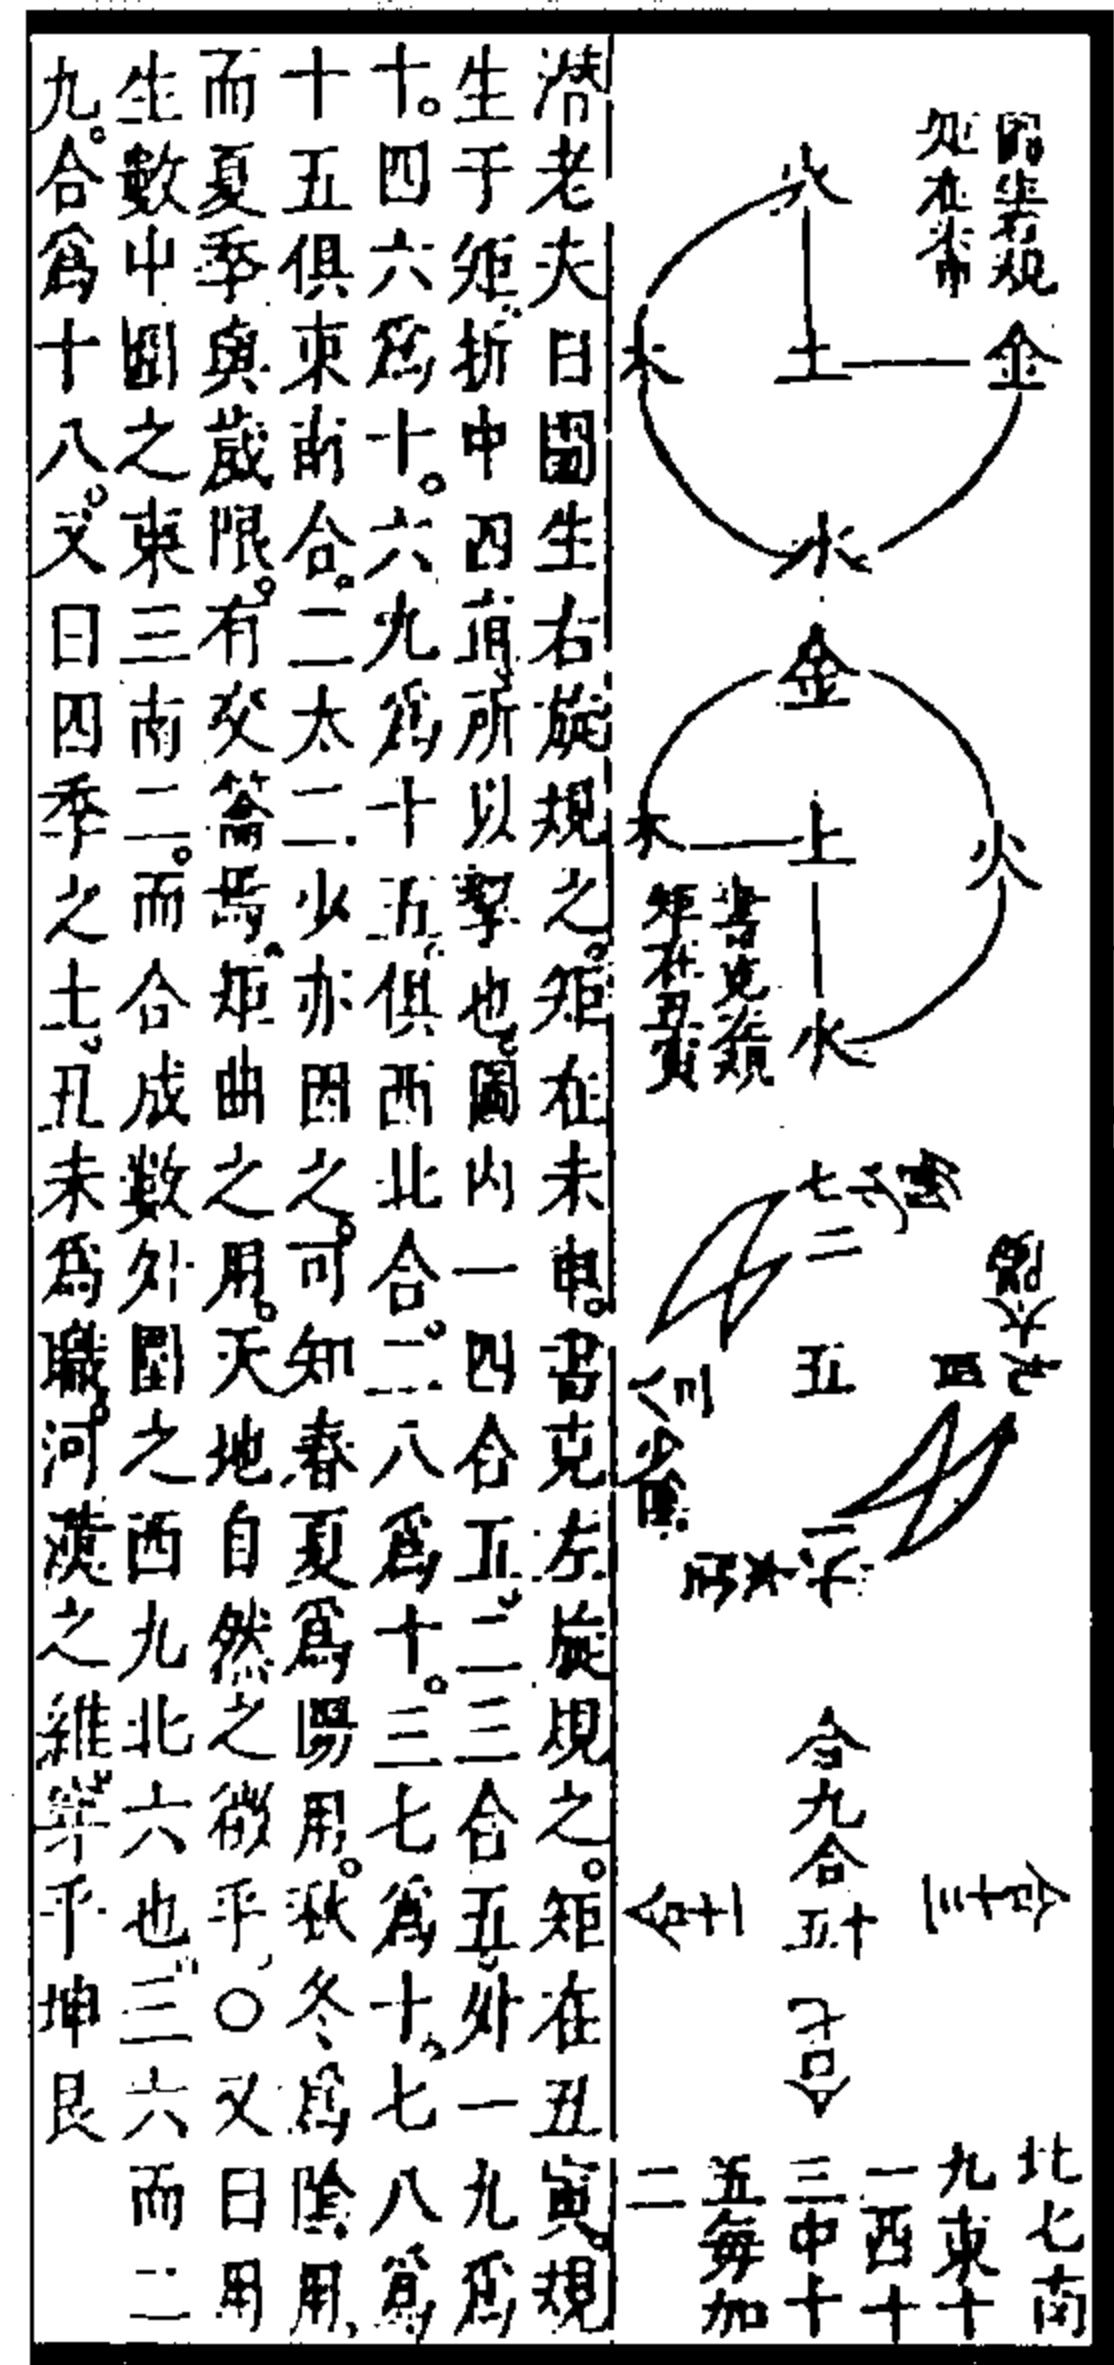 圖生右規
矩在未申
火
金
土
木
水
金
火
土
木
水
書克左規
矩在丑寅
七
二
五
三
八
少陰
四
九
一
六
太陽
合九合
五十
合十三
合十一
合七
北七南
九東十
一西十
三中十
五每加
二
潛老夫曰圖生右旋規之。矩在未申。書克左旋規之。矩在丑寅。規
生于矩、折中四直、所以挈也、圖內一四合五、二三合五、外一九爲
十。四六爲十。六九爲十五、俱西北合。二八爲十。三七爲十。七八爲
十五俱東南合。二太二少亦因之。可知春夏爲陽用。秋冬爲陰用、
而夏季與歲限。有交籥焉。矩曲之用。天地自然之微乎、○又曰用
生數中圍之東三南二。而合成數外圍之西九北六也、三六而二
九。合爲十八。又曰四季之土、丑未爲職。河漢之維、準乎坤艮